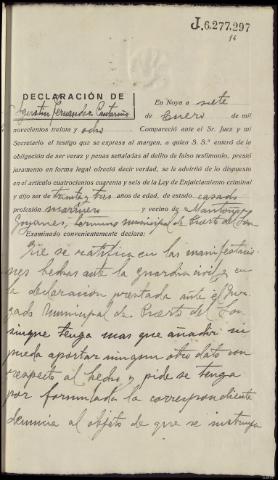 J.6.277.297
16
DECLARACIÓN DE
Agustin Fernandez
En Noya a siete
de Enero de mil
novecientos treinta y ocho Compareció ante el Sr. Juez y mi
Secretario el testigo que se expresa al margen, a quien S. S.ª enteró de la
obligación de ser veraz y penas señaladas al delito de falso testimonio, prestó
juramento en forma legal ofreció decir verdad, se le advirtió de lo dispuesto
en el artículo cuatrocientos cuarenta y seis de la Ley de Enjuiciamiento criminal
y dijo ser de treinta y tres años de edad, de estado casado
profesión marinero y vecino de
Goyanes, termino municipal de Puerto del Son
Examinado convenientemente declara:
Que se ratifica en las manifestacio
nes hechas ante la guardia civil y en
la declaracion prestada ante el Juz
gado Municipal de Puerto del Son
sin que tenga mas que añadir ni
pueda aportar ningun otro dato con
respecto al hecho y pide se tenga
por formulada la correspondiente
denuncia al objeto de que se instruya